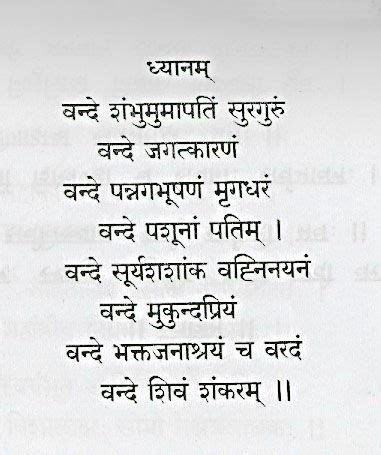 ध्यानम्
वन्दे शंभुमुमापतिं सुरगुरुं
वन्दे जगत्कारणं
वन्दे पन्नगभूषणं मृगधरं
वन्दे पशूनां पतिम् ।
वन्दे सूर्यशशांक वह्निनयनं
वन्दे मुकुन्दप्रियं
वन्दे भक्तजनाश्रयं च वरदं
वन्दे शिवं शंकरम् ।।